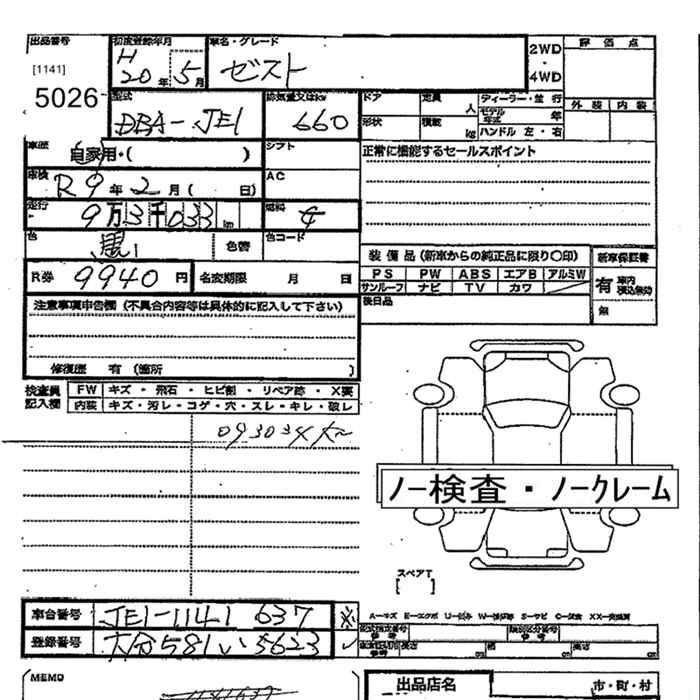 出品番号 初度登録年月 車名・グレード 2WD 評価点
[1141] H 20年 5月 ゼスト ・
5026 4WD
型式 排気量又はkw ドア 定員 人 ディーラー・並行 外装 内装
DBA-JE1 660 形状 積載 kg モデル年式 年
ハンドル 左・右
車歴 自家用・( ) シフト 正常に機能するセールスポイント
車検 R9年2月( 日) AC
走行 9万3千033km 燃料
色 黒 色替 色コード
装備品(新車からの純正品に限り○印) 新車保証書
R券 9940円 名変期限 月 日 PS PW ABS エアB アルミW 有 車内 積込無効
サンルーフ ナビ TV カワ
注意事項申告欄(不具合内容等は具体的に記入して下さい) 後日品 無
修復歴 有(箇所 )
検査員 FW キズ・飛石・ヒビ割・リペア跡・X要
記入欄 内装 キズ・汚レ・コゲ・穴・スレ・キレ・破レ
ノー検査・ノークレーム
スペアT
[ ]
車台番号 JE1-1141637 ※
登録番号 大分581い5623
MEMO 出品店名 市・町・村